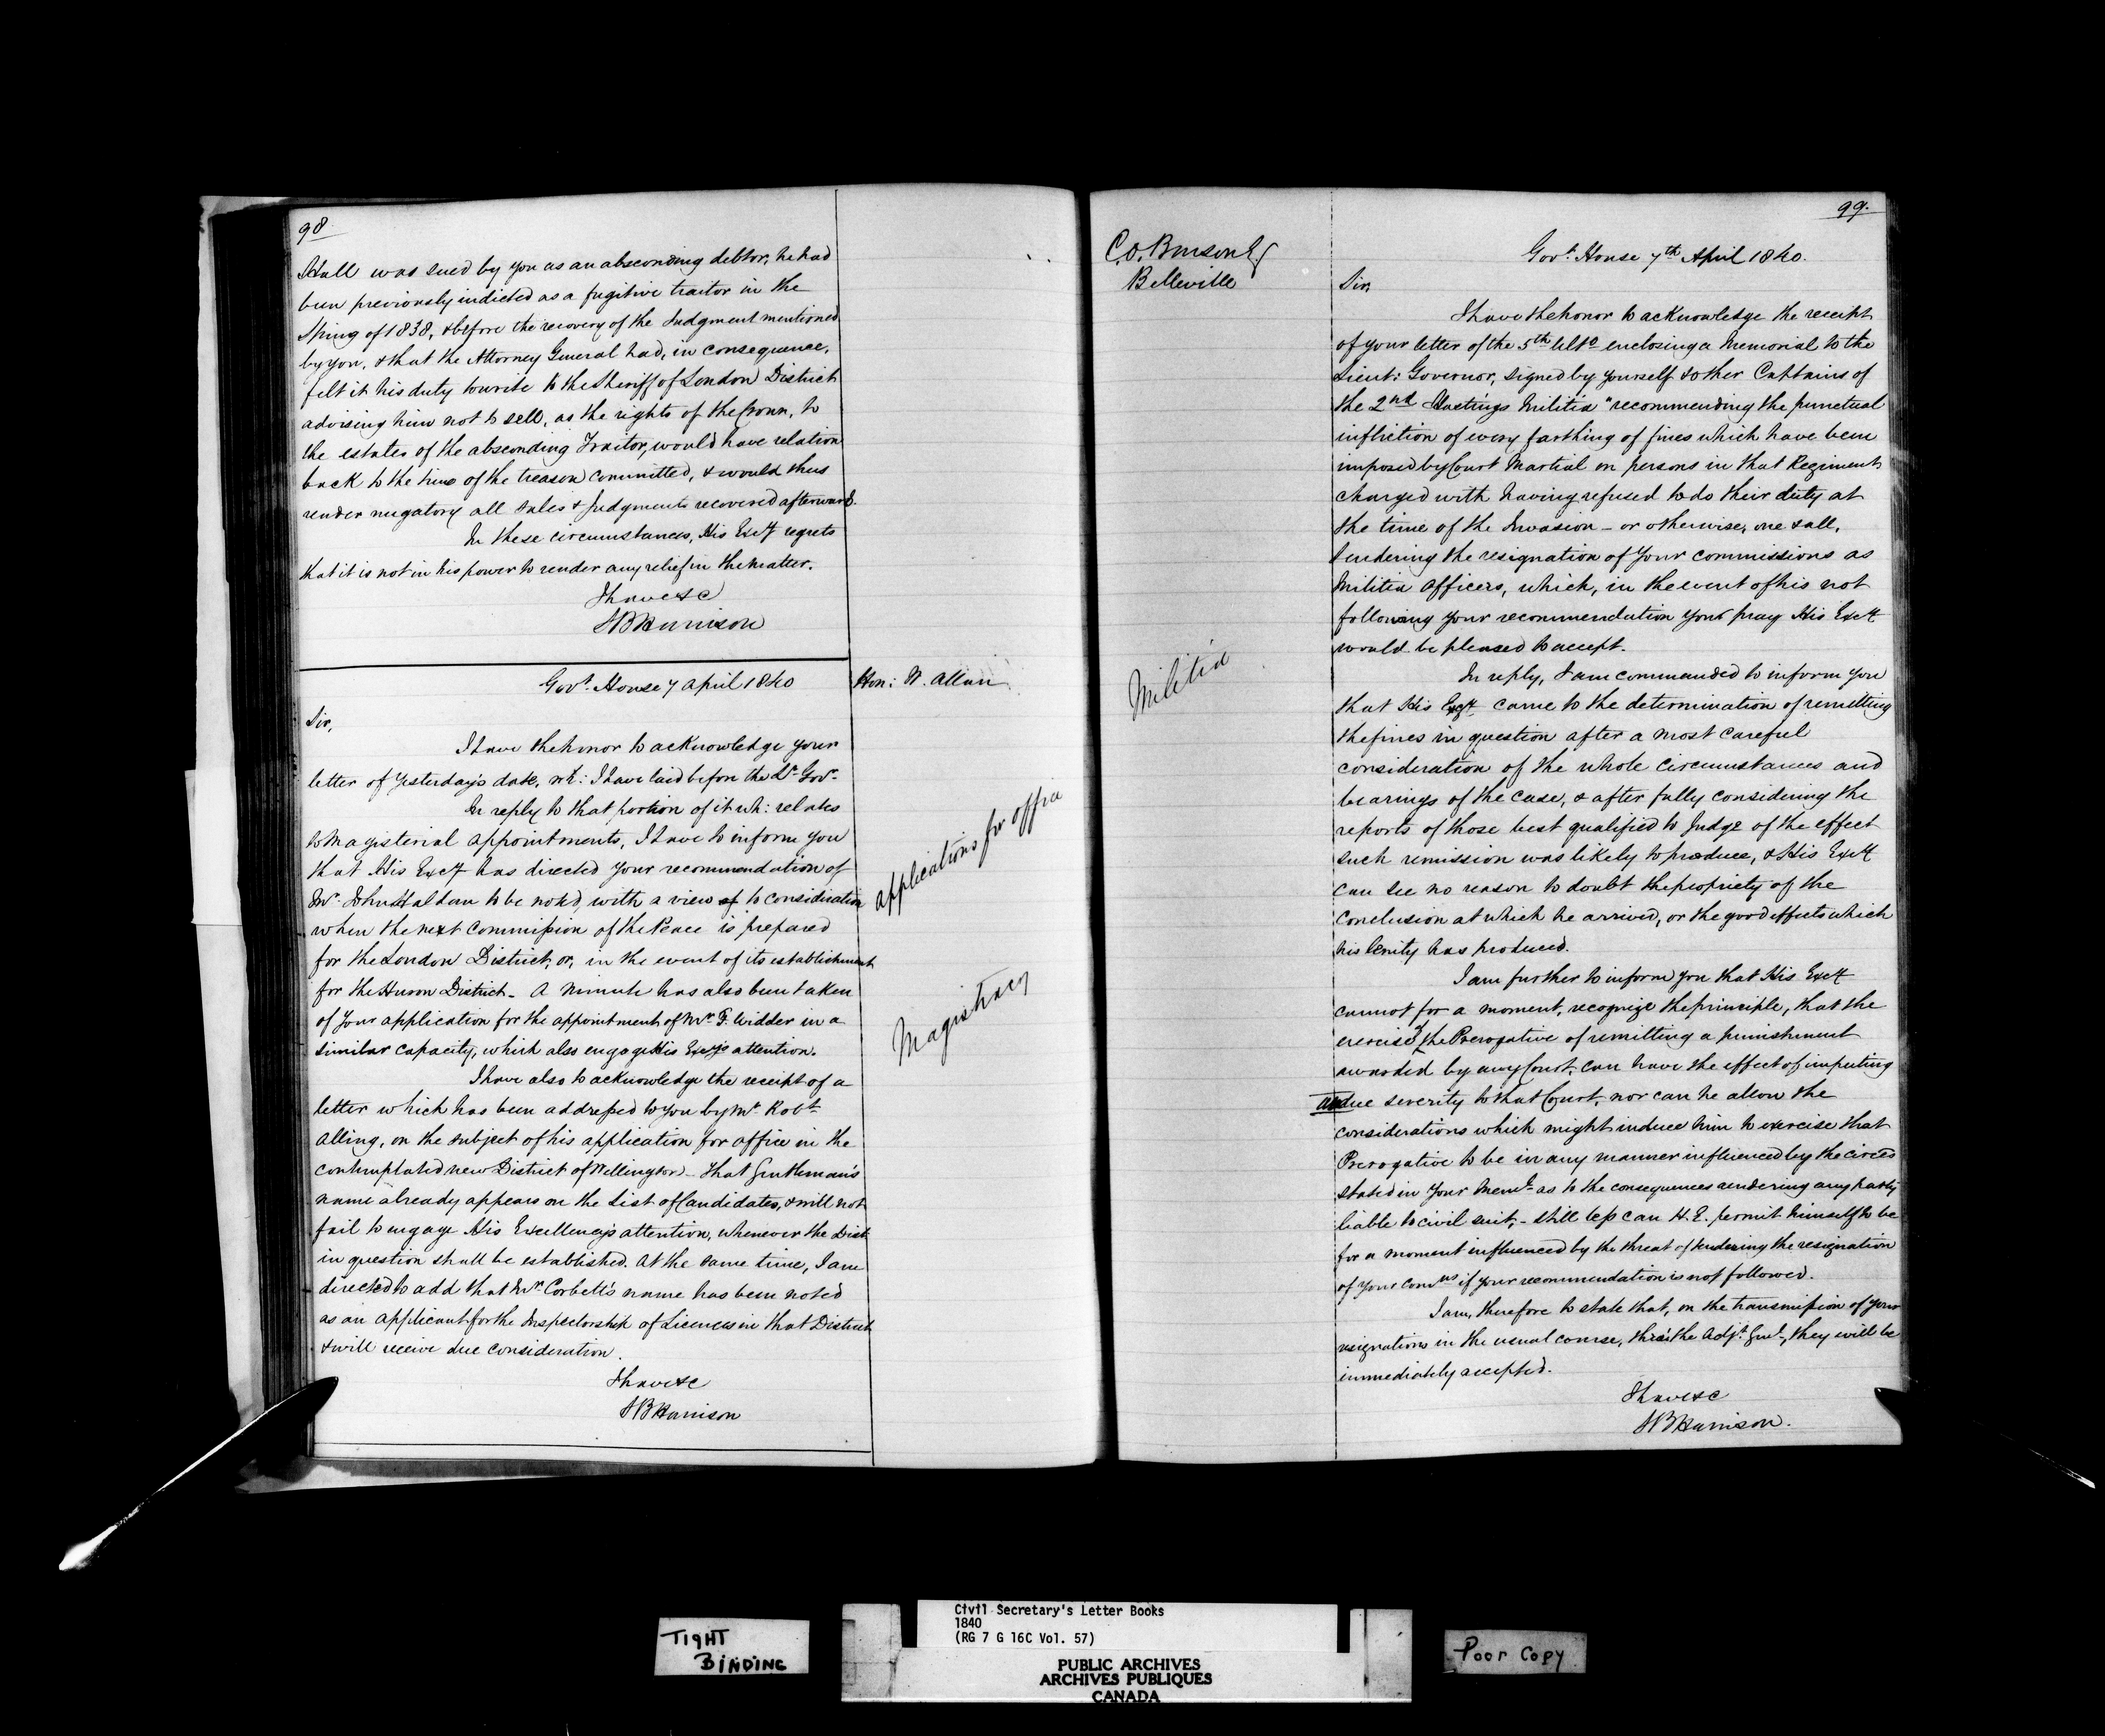 98
Hall was sued by you as an absconding debtor, he had
been previously indicted as a fugitive traitor in the
Spring of 1838, & before the recovery of the Judgment mentioned
by you, & that the Attorney General had, in consequence,
felt it his duty to write to the Sheriff of London District
advising him not to sell, as the rights of the Crown, to
the estates of the absconding Traitor, would have relation
back to the time of the treason committed, & would thus
render nugatory all sales & Judgments recovered afterward.
In these circumstances, His Excy regrets
that it is not in his power to render any relief in the matter.
I have &c
SBHarrison
Govt. House 7 April 1840
Hon: W. Allan
Sir,
I have the honor to acknowledge your
letter of yesterday's date, wh: I have laid before the Lt. Govr.
In reply to that portion of it wh: relates
to Magisterial appointments, I have to inform you
that His Excy has directed your recommendation of
Mr. John Haldan to be noted, with a view of to consideration
when the next Commission of the Peace is prepared
for the London District, or, in the event of its establishment
for the Huron District - A minute has also been taken
of your application for the appointment of Mr. F. Widder in a
similar capacity, which also engage His Excy's attention.
I have also to acknowledge the receipt of a
letter which has been addressed to you by Mr. Robt.
Alling, on the subject of his application for office in the
contemplated new District of Wellington - That Gentleman's
name already appears on the List of Candidates, & will not
fail to engage His Excellency's attention, whenever the Dist.
in question shall be established. At the same time, I am
directed to add that Mr. Corbett's name has been noted
as an applicant for the Inspectorship of Licences in that District
& will receive due consideration.
I have &c
SBHarrison
applications for office
Magistracy
99.
C.O. Benson Esq
Belleville
Govt. House 7th April 1840.
Sir,
I have the honor to acknowledge the receipt
of your letter of the 5th Ulto enclosing a Memorial to the
Lieut: Governor, signed by yourself & other Captains of
the 2nd Hastings Militia "recommending the punctual
infliction of every farthing of fines which have been
imposed by Court Martial on persons in that Regiment
charged with having refused to do their duty at
the time of the Invasion - or otherwise, one & all,
tendering the resignation of your commissions as
Militia Officers, which, in the event of his not
following your recommendation you pray His Excy
would be pleased to accept.
Militia
In reply, I am commanded to inform you
that His Excy came to the determination of remitting
the fines in question after a most careful
consideration of the whole circumstances and
bearings of the case, & after fully considering the
reports of those best qualified to Judge of the effect
such remission was likely to produce, & His Excy
can see no reason to doubt the propriety of the
conclusion at which he arrived, or the good effects which
his lenity has produced.
I am further to inform you that His Excy
cannot for a moment, recognize the principle, that the
exercise of the Prerogative of remitting a punishment
awarded by any Court, can have the effect of imputing
undue severity to that Court, nor can he allow the
considerations which might induce him to exercise that
Prerogative to be in any manner influenced by the circes
stated in your Meml. as to the consequences rendering any party
liable to civil suit, - still less can H.E. permit himself to be
for a moment influenced by the threat of tendering the resignation
of your Comns if your recommendation is not followed.
I am, therefore to state that, on the transmission of your
resignations in the usual course, thro' the Adjt. Genl., they will be
immediately accepted.
I have &c
SBHarrison.
TIGHT
BINDING
Civil Secretary's Letter Books
1840
(RG 7 G 16C Vol. 57)
PUBLIC ARCHIVES
ARCHIVES PUBLIQUES
CANADA
Poor Copy